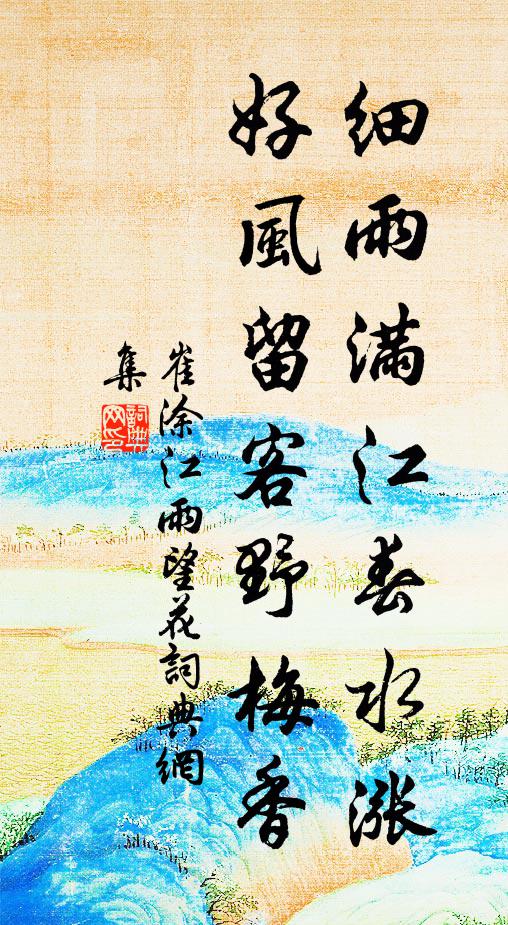 細雨滿江春水漲
好風留客野梅香
崔涂江雨望花詞典網
集
詞典網印